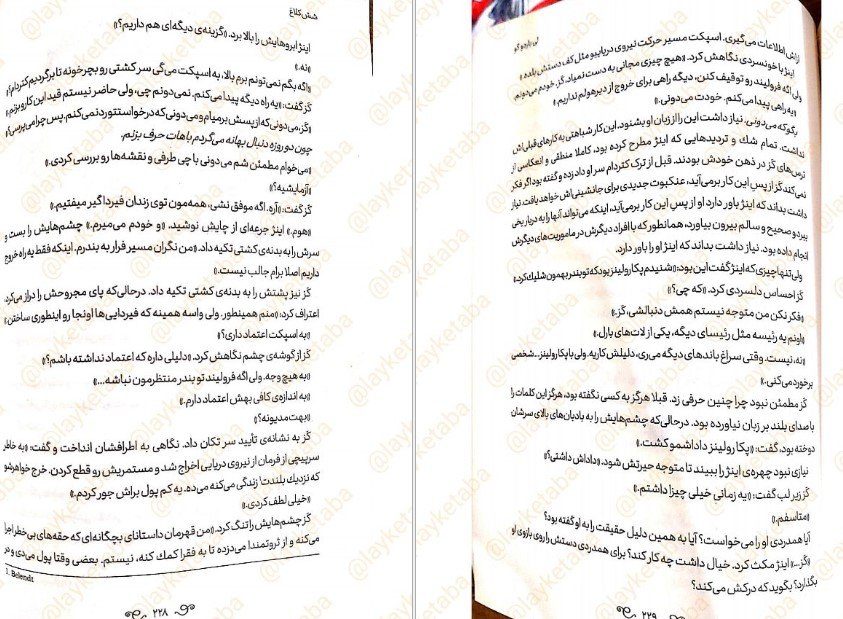 شش کلاغ
اینژ ابروهایش را بالا برد. «گزینه‌ی دیگه‌ای هم داریم؟»
«نه.»
«اگه بگم نمی‌تونم برم بالا، به اسپکت می‌گی سر کشتی رو بچرخونه تا برگردیم کتردام؟»
کَز گفت: «یه راه دیگه پیدا می‌کنم. نمی‌دونم چی، ولی حاضر نیستم قید این کارو بزنم.»
«کَز، می‌دونی که از پسش برمیام و می‌دونی که درخواستتو رد نمی‌کنم. پس چرا می‌پرسی؟»
چون دو روزه دنبال بهانه می‌گردم باهات حرف بزنم.
«می‌خوام مطمئن شم می‌دونی با چی طرفی و نقشه‌ها رو بررسی کردی.»
«آزمایشیه؟»
کَز گفت: «آره. اگه موفق نشی، همه‌مون توی زندان فیردا گیر میفتیم.»
«هوم.» اینژ جرعه‌ای از چایش نوشید. «و خودم می‌میرم.» چشم‌هایش را بست و
سرش را به بدنه‌ی کشتی تکیه داد. «من نگران مسیر فرار به بندرم. اینکه فقط یه راه خروج
داریم اصلا برام جالب نیست.»
کَز نیز پشتش را به بدنه‌ی کشتی تکیه داد. درحالی‌که پای مجروحش را دراز می‌کرد
اعتراف کرد: «منم همینطور. ولی واسه همینه که فیردایی‌ها اونجا رو اینطوری ساختن.»
«به اسپکت اعتماد داری؟»
کَز از گوشه‌ی چشم نگاهش کرد. «دلیلی داره که اعتماد نداشته باشم؟»
«به هیچ وجه. ولی اگه فرولیند تو بندر منتظرمون نباشه...»
«به اندازه‌ی کافی بهش اعتماد دارم.»
«بهت مدیونه؟»
کَز به نشانه‌ی تأیید سر تکان داد. نگاهی به اطرافشان انداخت و گفت: «به خاطر
سرپیچی از فرمان از نیروی دریایی اخراج شد و مستمریش رو قطع کردن. خرج خواهرشو
که نزدیک بلندت¹ زندگی می‌کنه می‌ده. یه کم پول براش جور کردم.»
«خیلی لطف کردی.»
کَز چشم‌هایش را تنگ کرد. «من قهرمان داستانای بچگانه‌ای که حقه‌های بی‌خطر اجرا
می‌کنه و از ثروتمندا می‌دزده تا به فقرا کمک کنه، نیستم. بعضی وقتا پول می‌دی و در
1. Belendt
۲۲۸
لی باردوگو
ازاش اطلاعات می‌گیری. اسپکت مسیر حرکت نیروی دریاییو مثل کف دستش بلده.»
اینژ با خونسردی نگاهش کرد. «هیچ چیزی مجانی به دست نمیاد، کَز. خودم می‌دونم.
ولی اگه فرولیند رو توقیف کنن، دیگه راهی برای خروج از دیرهولم نداریم.»
«یه راهی پیدا می‌کنم. خودت می‌دونی.»
بگو که می‌دونی. نیاز داشت این را از زبان او بشنود. این کار شباهتی به کارهای قبلی‌اش
نداشت. تمام شک و تردیدهایی که اینژ مطرح کرده بود، کاملا منطقی و انعکاسی از
ترس‌های کَز در ذهن خودش بودند. قبل از ترک کتردام سر او داد زده و گفته بود اگر فکر
نمی‌کند کَز از پس این کار برمی‌آید، عنکبوت جدیدی برای جانشینی‌اش خواهد یافت. نیاز
داشت بداند که اینژ باور دارد او از پس این کار برمی‌آید، اینکه می‌تواند آنها را به دربار یخی
ببرد و صحیح و سالم بیرون بیاورد، همانطور که با افراد دیگرش در ماموریت‌های دیگرش
انجام داده بود. نیاز داشت بداند که اینژ او را باور دارد.
ولی تنها چیزی که اینژ گفت این بود: «شنیدم پکا رولینز بود که تو بندر بهمون شلیک کرد.»
کَز احساس دلسردی کرد. «که چی؟»
«فکر نکن من متوجه نیستم همش دنبالشی، کَز.»
«اونم یه رئیسه مثل رئیسای دیگه، یکی از لات‌های بارل.»
«نه، نیست. وقتی سراغ باندهای دیگه می‌ری، دلیلش کاریه. ولی با پکا رولینز... شخصی
برخورد می‌کنی.»
کَز مطمئن نبود چرا چنین حرفی زد. قبلا هرگز به کسی نگفته بود، هرگز این کلمات را
با صدای بلند بر زبان نیاورده بود. درحالی‌که چشم‌هایش را به بادبان‌های بالای سرشان
دوخته بود، گفت: «پکا رولینز داداشمو کشت.»
نیازی نبود چهره‌ی اینژ را ببیند تا متوجه حیرتش شود. «داداش داشتی؟»
کَز زیر لب گفت: «یه زمانی خیلی چیزا داشتم.»
«متاسفم.»
آیا همدردی او را می‌خواست؟ آیا به همین دلیل حقیقت را به او گفته بود؟
«کَز...» اینژ مکث کرد. خیال داشت چه کار کند؟ برای همدردی دستش را روی بازوی او
بگذارد؟ بگوید که درکش می‌کند؟
۲۲۹